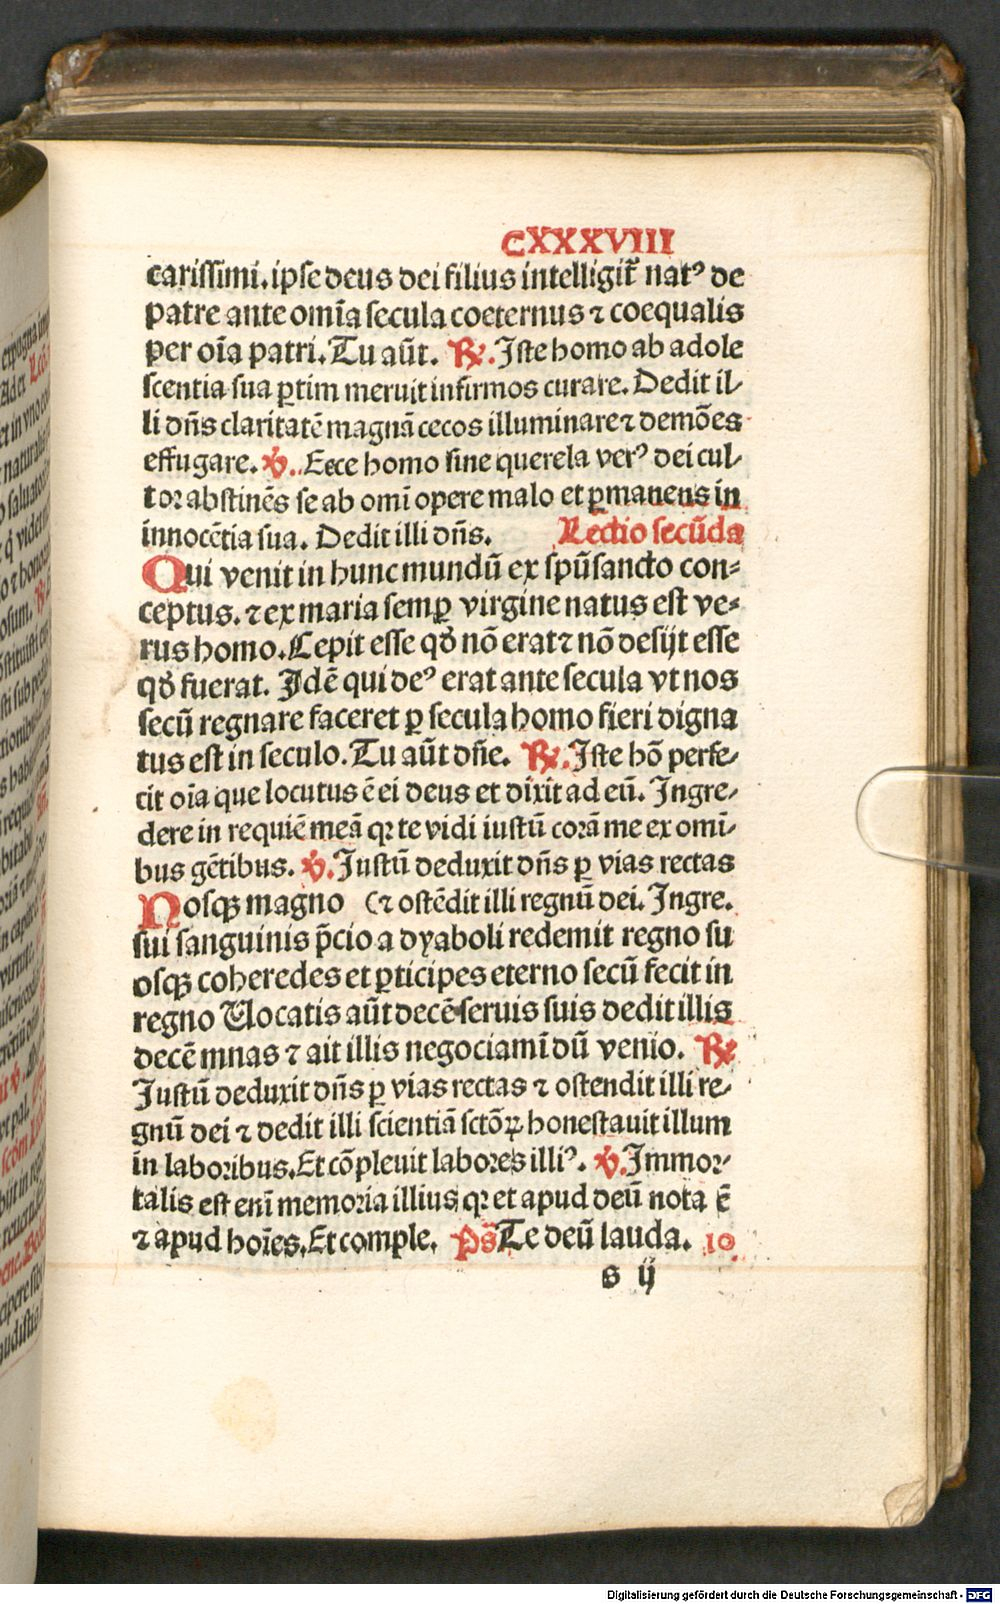 CXXXVIIII
carissimi. ipse deus dei filius intelligit̃ natꝰ de
patre ante om̃ia secula coeternus ⁊ coequalis
per oĩa patri. Tu aũt. ℟. Iste homo ab adole
scentia sua ꝑtim meruit infirmos curare. Dedit il⸗
li dñs claritatẽ magnã cecos illuminare ⁊ demões
effugare. ℣. Ecce homo sine querela verꝰ dei cul⸗
tor abstinẽs se ab omĩ opere malo et ꝑmanens in
innocẽtia sua. Dedit illi dñs. Lectio secũda
Qui venit in hunc mundũ ex spũsancto con⸗
ceptus. ⁊ ex maria semꝑ virgine natus est ve⸗
rus homo. Cepit esse qđ nõ erat ⁊ nõ desijt esse
qđ fuerat. Idẽ qui deꝰ erat ante secula vt nos
secũ regnare faceret ꝑ secula homo fieri digna
tus est in seculo. Tu aũt dñe. ℟. Iste hõ perfe⸗
cit oĩa que locutus ẽ ei deus et dixit ad eũ. Ingre⸗
dere in requiẽ meã qꝛ te vidi iustũ corã me ex omĩ⸗
bus gẽtibus. ℣. Iustũ deduxit dñs ꝑ vias rectas
Nosqꝫ magno (⁊ ostẽdit illi regnũ dei. Ingre.
sui sanguinis p̃cio a dyaboli redemit regno su
osqꝫ coheredes et ꝑticipes eterno secũ fecit in
regno Uocatis aũt decẽ seruis suis dedit illis
decẽ mnas ⁊ ait illis negociamĩ dũ venio. ℟
Iustũ deduxit dñs ꝑ vias rectas ⁊ ostendit illi re⸗
gnũ dei ⁊ dedit illi scientiã sctõꝝ honestauit illum
in laboribus. Et cõpleuit labores illiꝰ. ℣. Immor⸗
talis est enĩ memoria illius qꝛ et apud deũ nota ẽ
⁊ apud hoĩes. Et comple. Ps̃ Te deũ lauda. 10
s ij
Digitalisierung gefördert durch die Deutsche Forschungsgemeinschaft - DFG